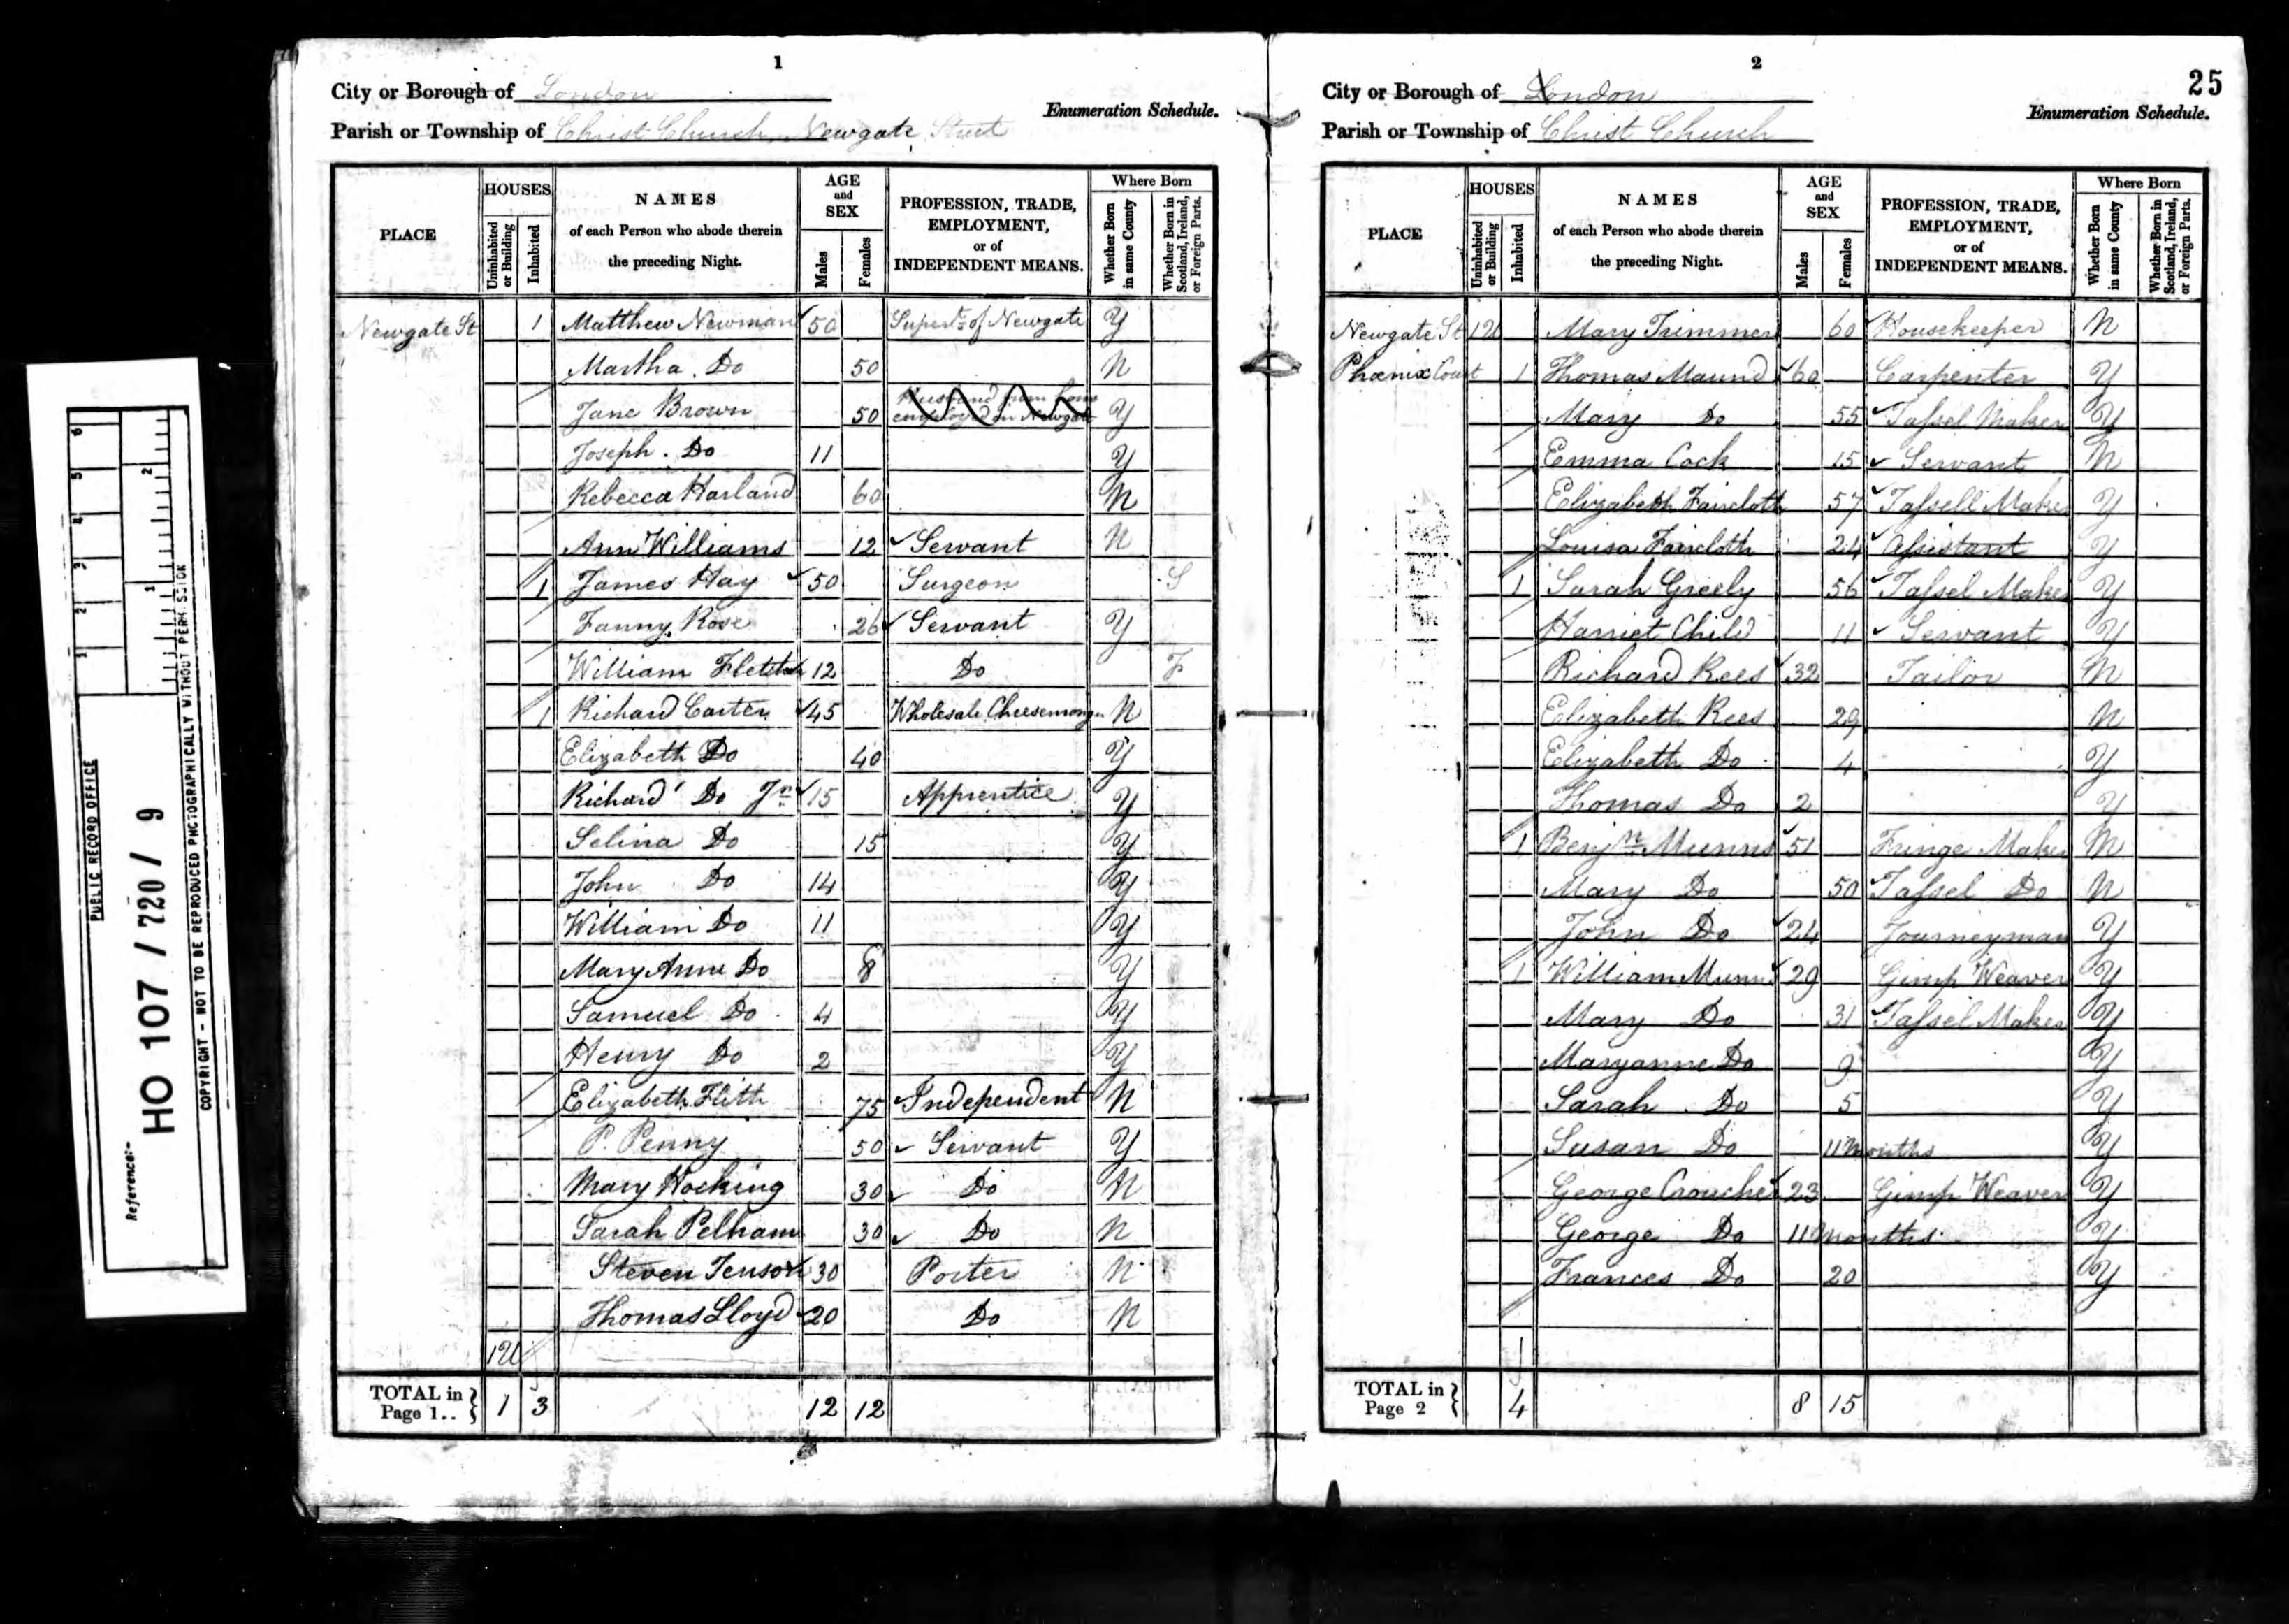 PUBLIC RECORD OFFICE
Reference:-
HO 107 / 720 / 9
COPYRIGHT - NOT TO BE REPRODUCED PHOTOGRAPHICALLY WITHOUT PERMISSION
1
City or Borough of London
Enumeration Schedule.
Parish or Township of Christ Church, Newgate Street
PLACE HOUSES NAMES AGE and SEX PROFESSION, TRADE, EMPLOYMENT, or of INDEPENDENT MEANS. Where Born
Uninhabited or Building Inhabited of each Person who abode therein the preceding Night. Males Females Whether Born in same County Whether Born in Scotland, Ireland, or Foreign Parts.
Newgate St 1 Matthew Newman 50 Supert. of Newgate Y
Martha Do 50 N
Jane Brown 50 Husband from home employed in Newgate Y
Joseph Do 11 Y
Rebecca Harland 60 N
Ann Williams 12 Servant N
1 James Hay 50 Surgeon S
Fanny Rose 26 Servant Y
William 12 Do F
1 Richard Carter 45 Wholesale Cheesemonger N
Elizabeth Do 40 Y
Richard Do Jr 15 Apprentice Y
Selina Do 15 Y
John Do 14 Y
William Do 11 Y
Mary Anne Do 8 Y
Samuel Do 4 Y
Henry Do 2 Y
Elizabeth 75 Independent N
P. Penny 50 Servant Y
Mary Hocking 30 Do N
Sarah Pelham 30 Do N
Steven 30 Porter N
Thomas Lloyd 20 Do N
TOTAL in Page 1.. 1 3 12 12
2
25
City or Borough of London
Enumeration Schedule.
Parish or Township of Christ Church
PLACE HOUSES NAMES AGE and SEX PROFESSION, TRADE, EMPLOYMENT, or of INDEPENDENT MEANS. Where Born
Uninhabited or Building Inhabited of each Person who abode therein the preceding Night. Males Females Whether Born in same County Whether Born in Scotland, Ireland, or Foreign Parts.
Newgate St Mary Trimmer 60 Housekeeper N
Phœnix Court 1 Thomas Maund 60 Carpenter Y
Mary Do 55 Tassel Maker Y
Emma Cock 15 Servant N
Elizabeth Faircloth 57 Tassell Maker Y
Louisa Faircloth 24 Assistant Y
1 Sarah Greely 56 Tassel Maker Y
Harriet Child 11 Servant Y
Richard Rees 32 Tailor N
Elizabeth Rees 29 N
Elizabeth Do 4 Y
Thomas Do 2 Y
1 Benjn Munns 51 Fringe Maker N
Mary Do 50 Tassel Do N
John Do 24 Journeyman Y
1 William Munns 29 Gimp Weaver Y
Mary Do 31 Tassel Maker Y
Maryanne Do 9 Y
Sarah Do 5 Y
Susan Do 11 Months Y
George Croucher 23 Gimp Weaver Y
George Do 11 Months Y
Frances Do 20 Y
TOTAL in Page 2 4 8 15